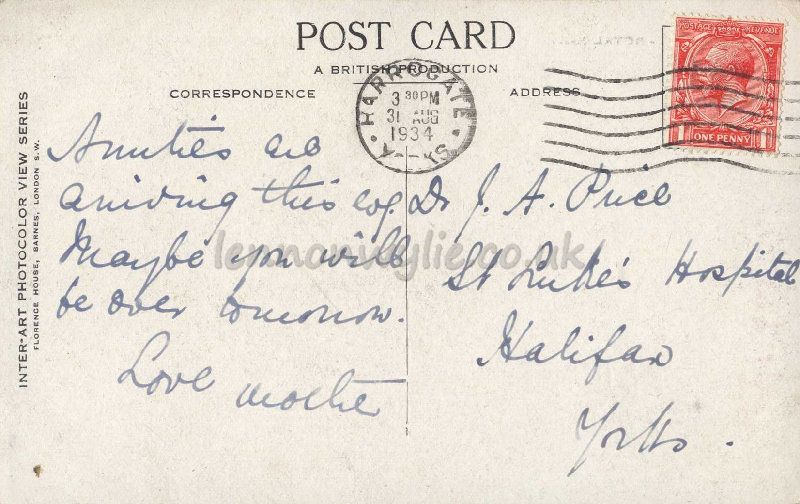 POST CARD
A BRITISH PRODUCTION
CORRESPONDENCE
ADDRESS
HARROGATE
3 30 PM
31 AUG
1934
YORKS
POSTAGE REVENUE
ONE PENNY
INTER-ART PHOTOCOLOR VIEW SERIES
FLORENCE HOUSE, BARNES, LONDON S.W.
Aunties are
arriving this
Maybe you will
be over tomorrow.
Love Mother
Dr J. A. Price
St Luke's Hospital
Halifax
Yorks.
lennonwylie.co.uk